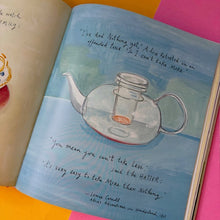 "I've had nothing yet," Alice replied in an
offended tone, "so I can't take more."
"You mean you can't take less,"
said the HATTER.
"It's very easy to take MORE than nothing."
- Lewis Carroll
Alice's Adventures in Wonderland